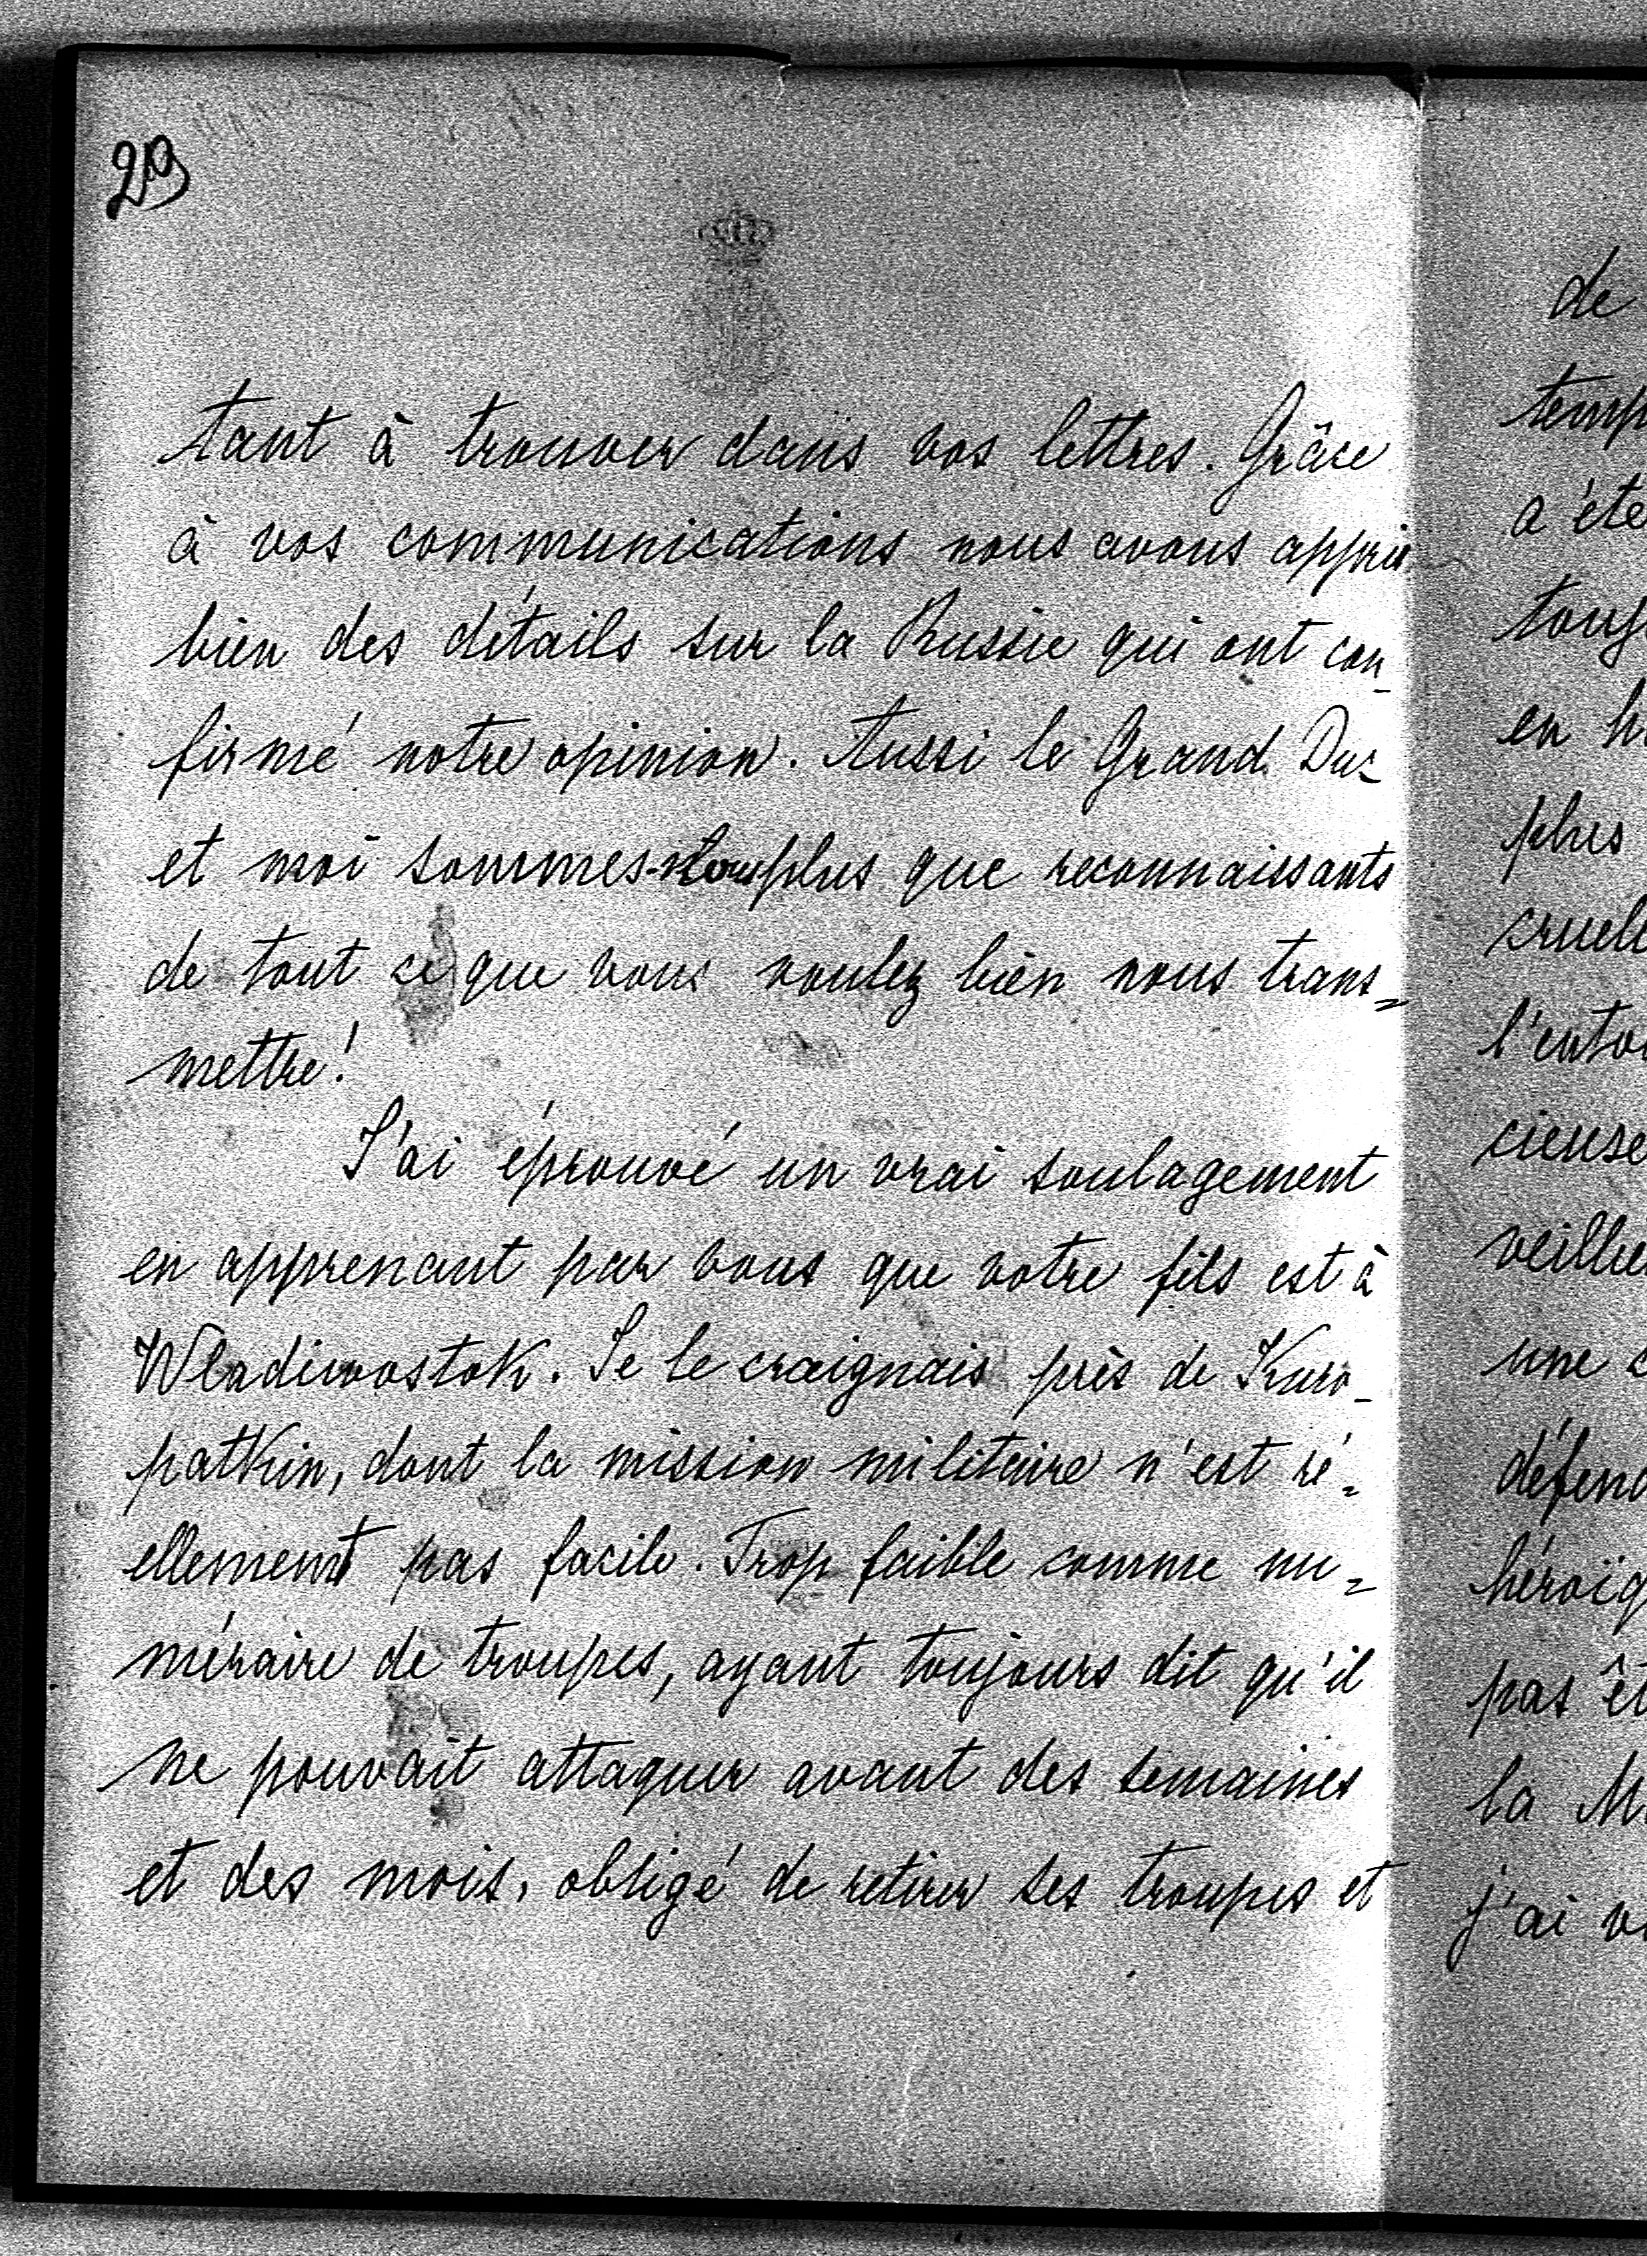 tant à trouver dans vos lettres. Grâce
à vos communications nous avons appris
bien des détails sur la Russie qui ont con-
firmé notre opinion. Aussi le Grand Duc
et moi sommes-nous plus que reconnaissants
de tout ce que vous voulez bien nous trans=
mettre!
J'ai éprouvé un vrai soulagement
en apprenant par vous que votre fils est à
Wladiwostok. Je le craignais près de Kuro-
patkin, dont la mission militaire n'est ré=
ellement pas facile. Trop faible comme nu=
méraire de troupes, ayant toujours dit qu'il
ne pouvait attaquer avant des semaines
et des mois, obligé de retirer ses troupes et
de
temp
a été
touj
en h
plus
cruell
l'ento
cieuse
veille
une
défend
héroïq
pas êt
la M
j'ai v